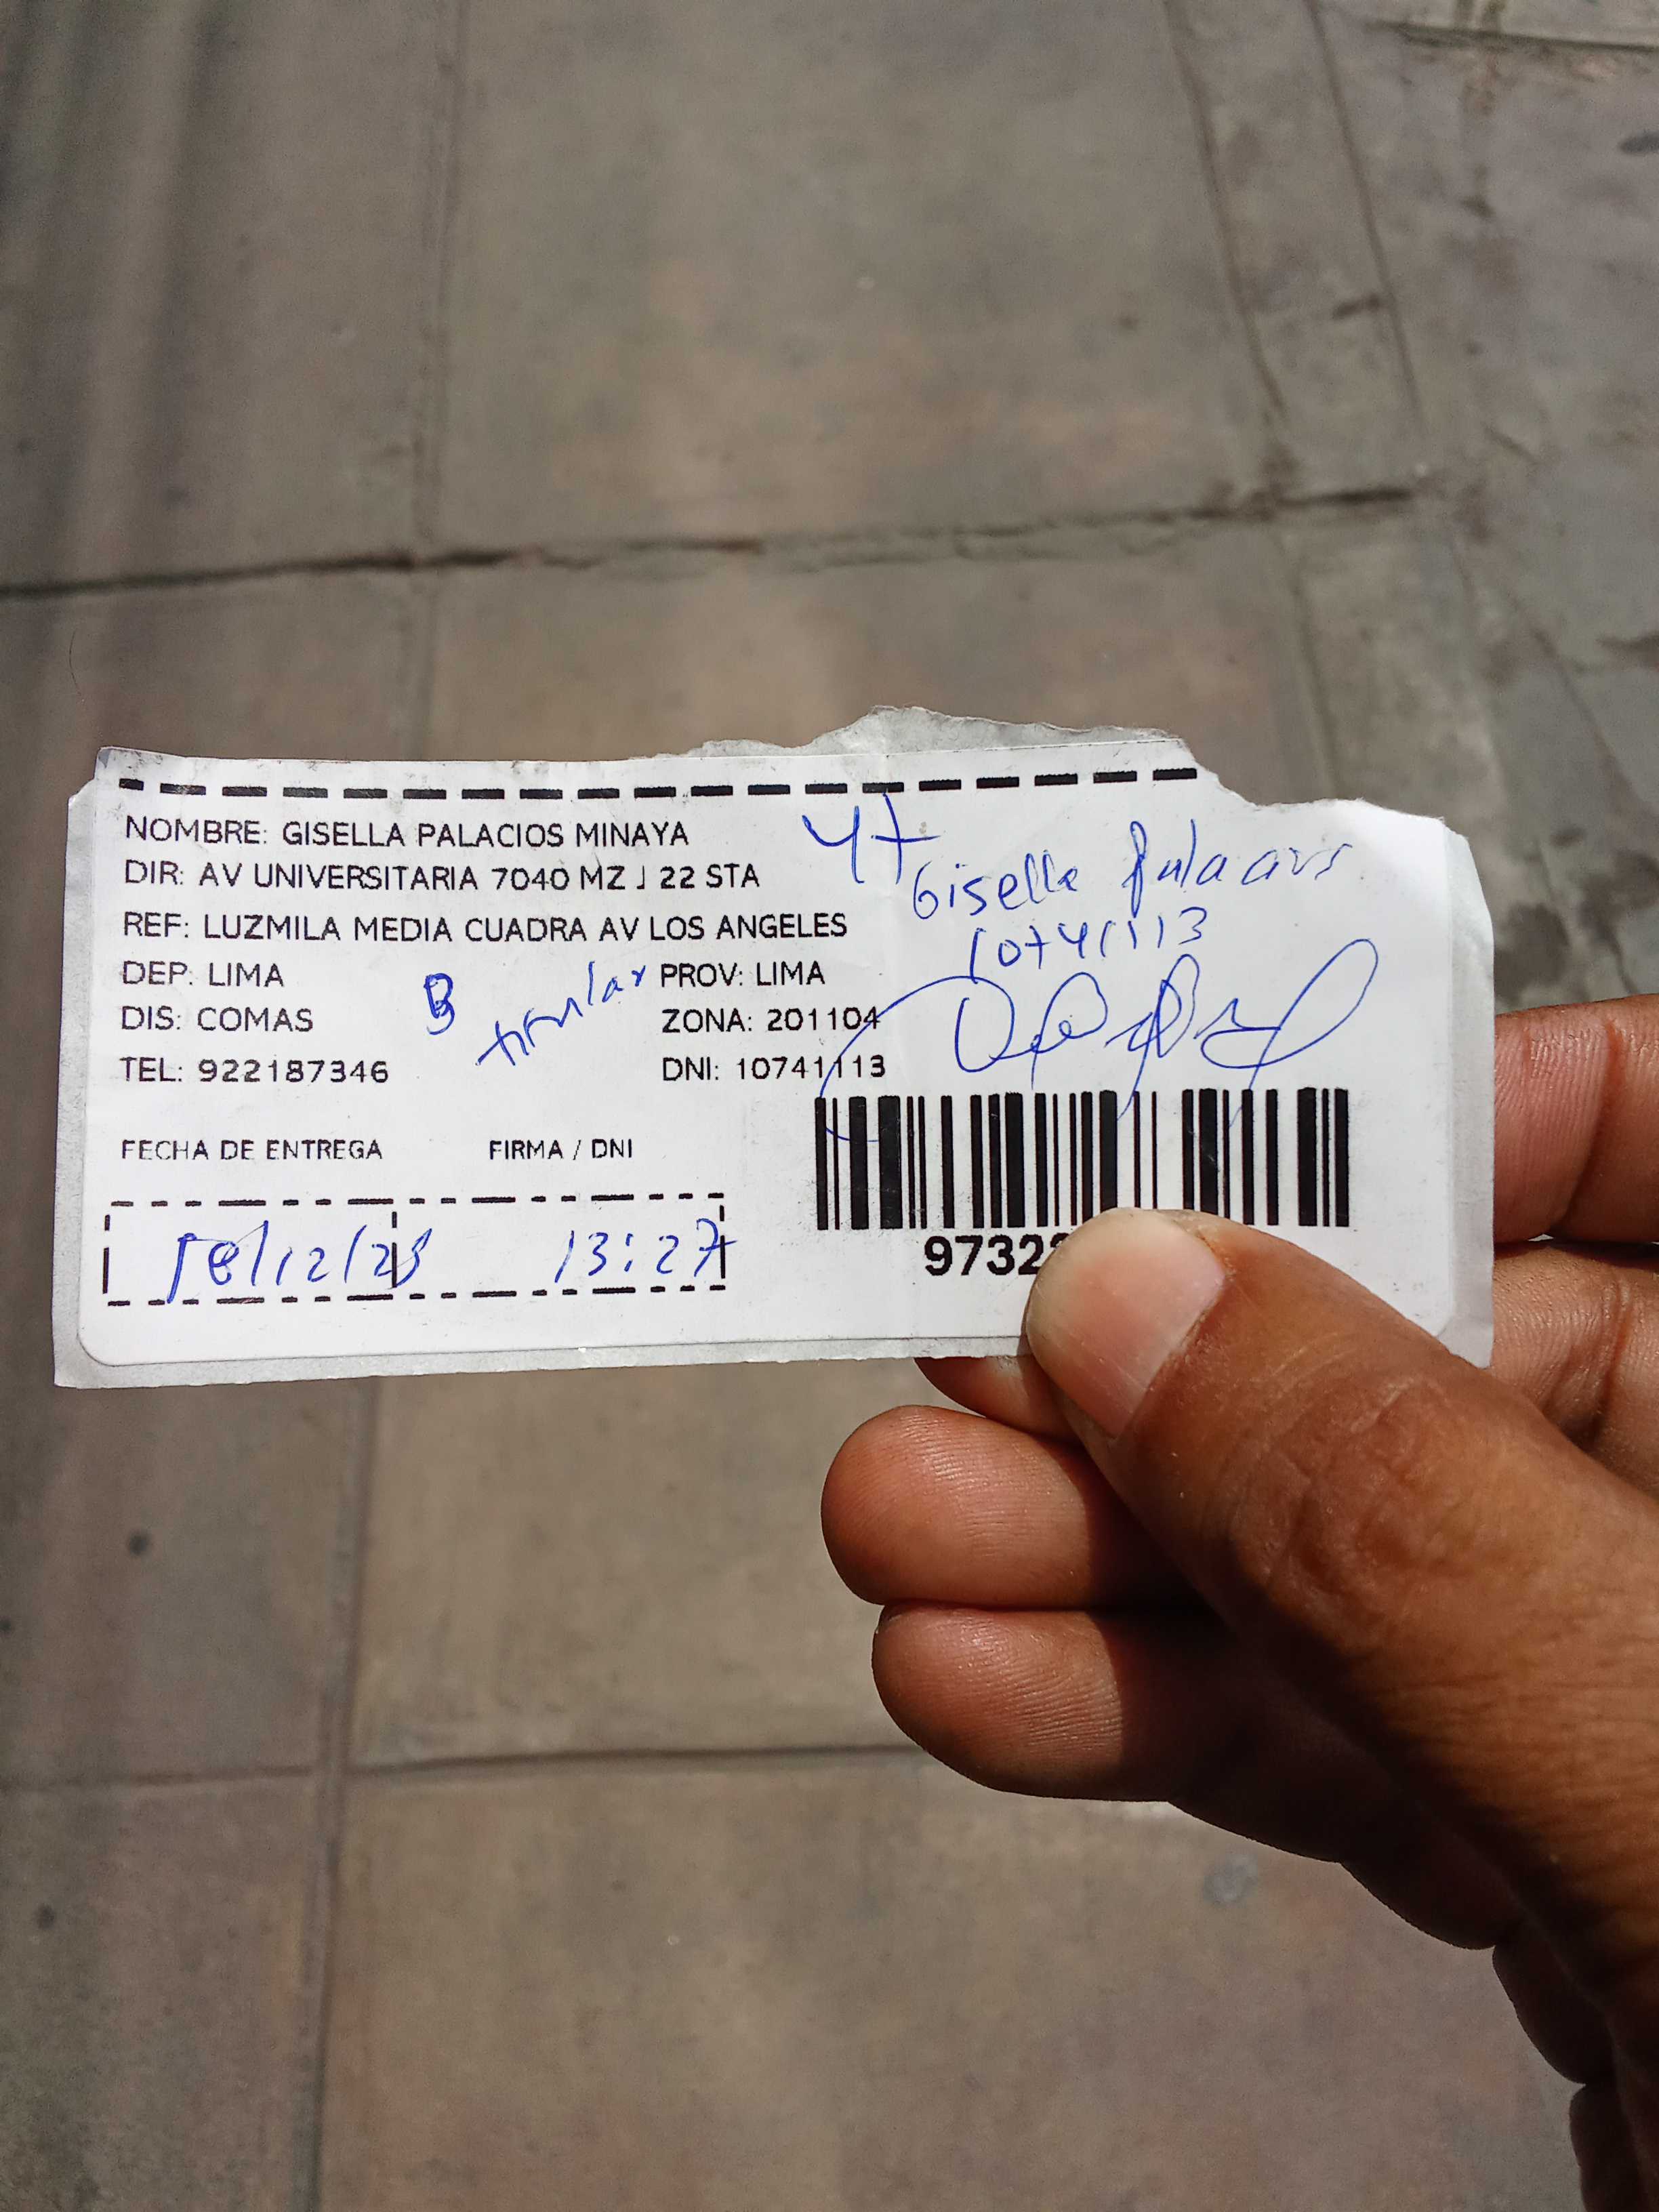 NOMBRE: GISELLA PALACIOS MINAYA
DIR: AV UNIVERSITARIA 7040 MZ J 22 STA
REF: LUZMILA MEDIA CUADRA AV LOS ANGELES
DEP: LIMA PROV: LIMA
DIS: COMAS ZONA: 201104
TEL: 922187346 DNI: 10741113
47
Gisella Palacios
10741113
B
titular
FECHA DE ENTREGA FIRMA / DNI
18/12/23 13:27
9732